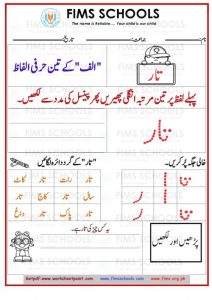 FIMS SCHOOLS
The name is Reliable.... Your child is our child
نام: جماعت: تاریخ:
"الف" کے تین حرفی الفاظ
تار
پہلے لفظ پر تین مرتبہ انگلی پھیریں پھر پینسل کی مدد سے لکھیں۔
تار
خالی جگہ پُر کریں۔
"تار" کے گرد دائرہ لگائیں
تار رات تار کاٹ
سال تار کاج تار
تار پاک تار داغ
یہ کس چیز کی تار ہے
پڑھیں اور لکھیں
تار
Getpdf:www.worksheetpoint.com www.fimsschools.com www.fims.org.pk